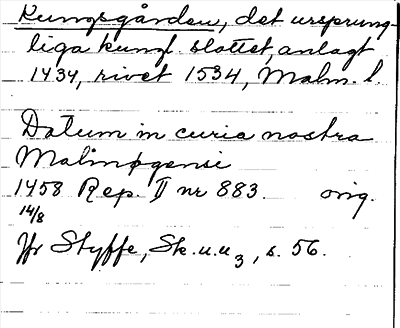 Kungsgården, det ursprung-
liga kungl. slottet, anlagt
1434, rivet 1534, Malm. l
Datum in curia nostra
Malmøgensi
1458 Rep. II nr 883. orig.
14/8
Jfr Styffe, Sk.u.u3, s. 56.